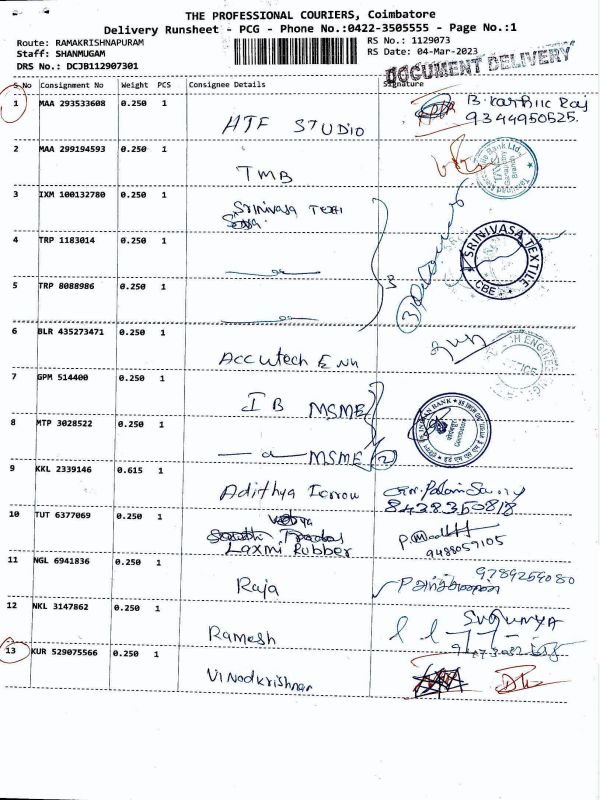 THE PROFESSIONAL COURIERS, Coimbatore
Delivery Runsheet - PCG - Phone No.:0422-3505555 - Page No.:1
Route: RAMAKRISHNAPURAM
Staff: SHANMUGAM
DRS No.: DCJB112907301
RS No.: 1129073
RS Date: 04-Mar-2023
DOCUMENT DELIVERY
S No Consignment No Weight PCS Consignee Details Signature
1 MAA 293533608 0.250 1 HTF STUDIO B. Karthic Raj
9344950525.
2 MAA 299194593 0.250 1 TMB
3 IXM 100132780 0.250 1 Srinivasa
4 TRP 1183014 0.250 1
SRINIVASA TEXTILE
CBE
5 TRP 8088986 0.250 1 3
6 BLR 435273471 0.250 1 Accutech
7 GPM 514400 0.250 1 IB MSME
INDIAN BANK
8 MTP 3028522 0.250 1 MSME 2
9 KKL 2339146 0.615 1 Adithya
8428350818
10 TUT 6377069 0.250 1
Laxmi Rubber
9488057105
11 NGL 6941836 0.250 1 Raja
9789259080
12 NKL 3147862 0.250 1 Ramesh SUGUNYA
13 KUR 529075566 0.250 1 Vinodkrishnan